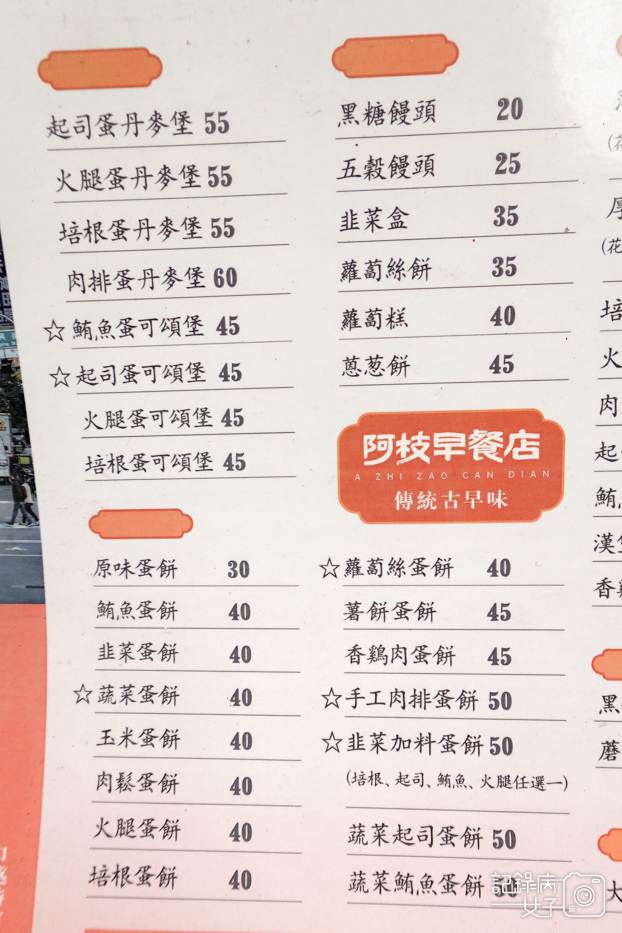 起司蛋丹麥堡 55
火腿蛋丹麥堡 55
培根蛋丹麥堡 55
肉排蛋丹麥堡 60
☆鮪魚蛋可頌堡 45
☆起司蛋可頌堡 45
火腿蛋可頌堡 45
培根蛋可頌堡 45
原味蛋餅 30
鮪魚蛋餅 40
韭菜蛋餅 40
☆蔬菜蛋餅 40
玉米蛋餅 40
肉鬆蛋餅 40
火腿蛋餅 40
培根蛋餅 40
黑糖饅頭 20
五穀饅頭 25
韭菜盒 35
蘿蔔絲餅 35
蘿蔔糕 40
蔥蔥餅 45
阿枝早餐店
A ZHI ZAO CAN DIAN
傳統古早味
☆蘿蔔絲蛋餅 40
薯餅蛋餅 45
香鷄肉蛋餅 45
☆手工肉排蛋餅 50
☆韭菜加料蛋餅 50
(培根、起司、鮪魚、火腿任選一)
蔬菜起司蛋餅 50
蔬菜鮪魚蛋餅 50
(花
厚
(花
培
火
肉
起
鮪
漢堡
香
黑
蘑
大
記錄病
女子